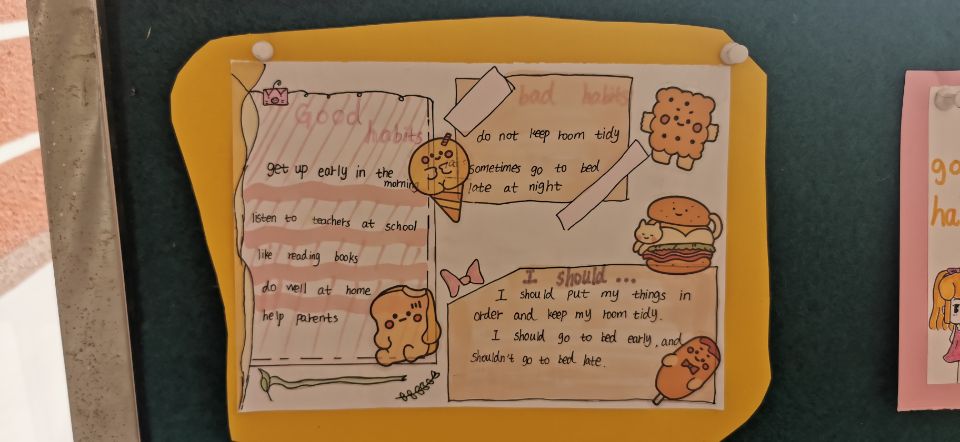 Good
habits
get up early in the
morning
listen to teachers at school
like reading books
do well at home
help parents
bad habits
do not keep room tidy
sometimes go to bed
late at night
I should ...
I should put my things in
order and keep my room tidy.
I should go to bed early, and
shouldn't go to bed late.
go
ha